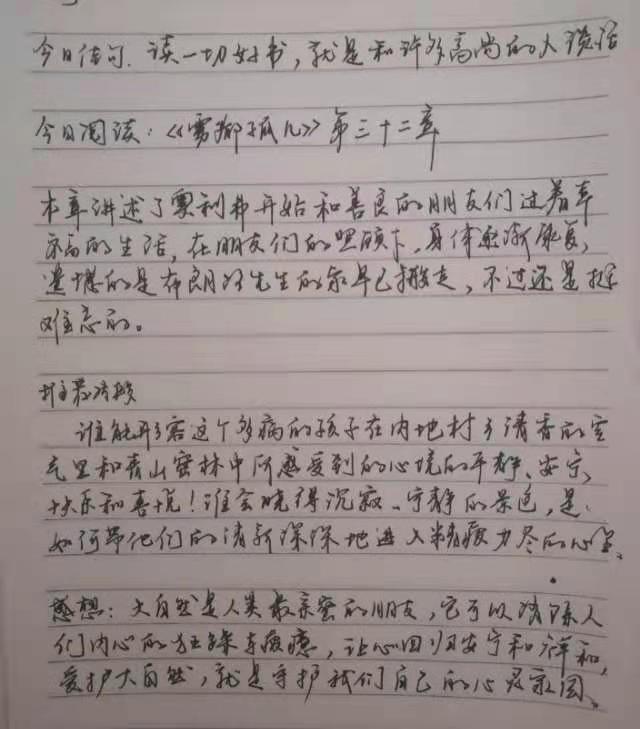 今日佳句.读一切好书,就是和许多高尚的人谈话
今日阅读:《雾都孤儿》第三十二章
本章讲述了奥利弗开始和善良的朋友们过着幸
福的生活,在朋友们的照顾下,身体逐渐康复,
遗憾的是布朗洛先生的家早已搬走,不过还是挺
难忘的。
谁能形容这个多病的孩子在内地村乡清香的空
气里和青山密林中所感受到的心境的平静、安宁、
快乐和喜悦!谁会晓得沉寂、宁静的景色,是
如何带他们的清新深深地进入精疲力尽的心里、
感想:大自然是人类最亲密的朋友,它可以消除人
们内心的狂躁与疲惫,让心回归安宁和祥和,
爱护大自然,就是守护我们自己的心灵家园。